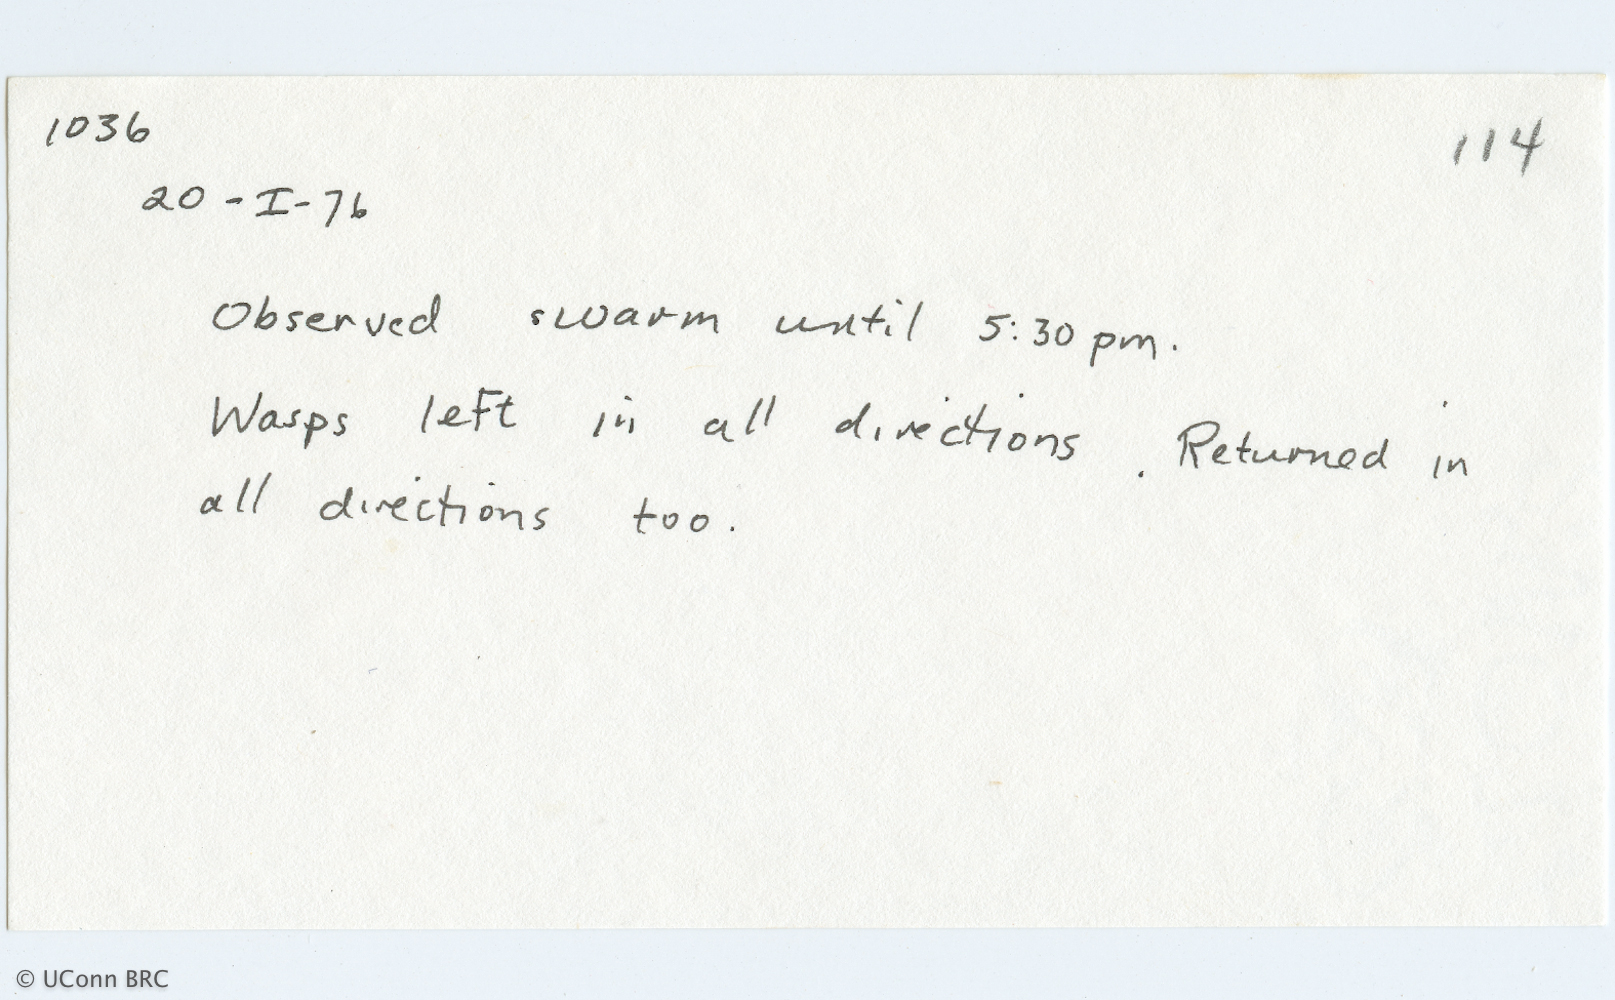 1036
114
20-I-76
Observed swarm until 5:30 pm.
Wasps left in all directions. Returned in
all directions too.
© UConn BRC